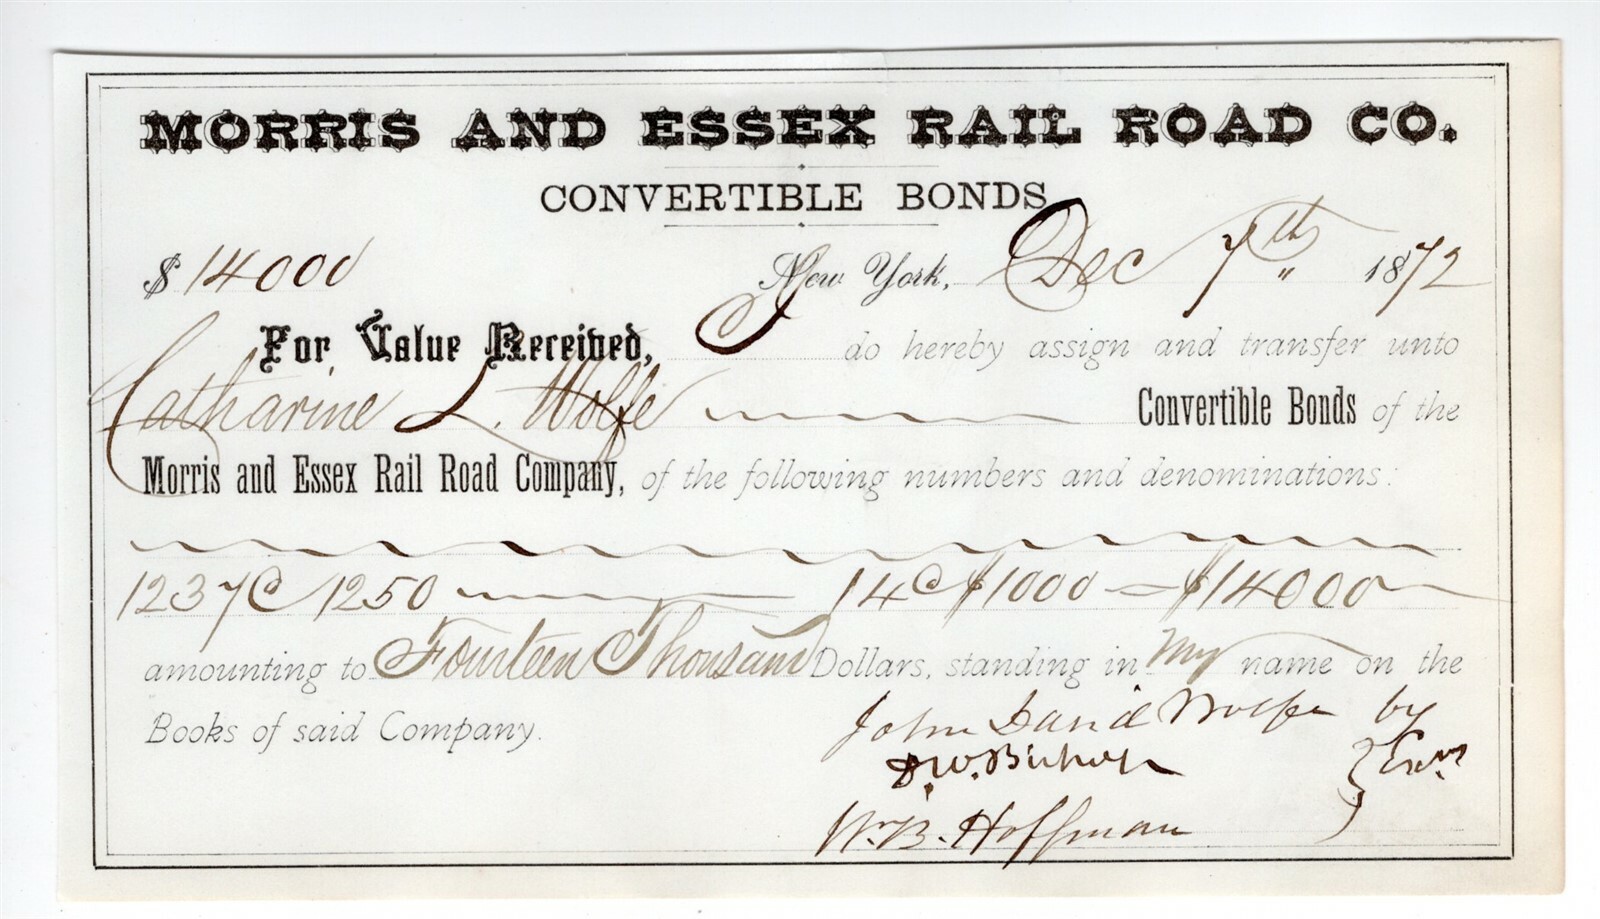 MORRIS AND ESSEX RAIL ROAD CO.
CONVERTIBLE BONDS
$ 14000 New York, Dec 7th 1872
For Value Received, I do hereby assign and transfer unto
Catharine L. Wolfe Convertible Bonds of the
Morris and Essex Rail Road Company, of the following numbers and denominations:
1237 @ 1250 14 @ $1000 = $14000
amounting to Fourteen Thousand Dollars, standing in my name on the
Books of said Company.
John David Wolfe by
D.W. Bishop } Exrs
Wm. B. Hoffman